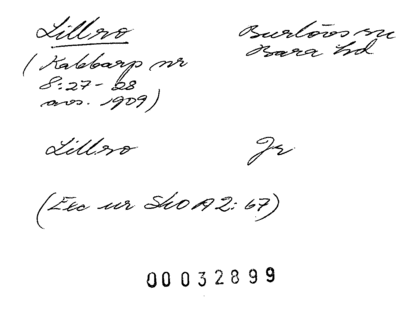 Lillro Burlövs sn
(Kabbarp nr Bara hd
8:27-28
avs. 1909)
Lillro Jr
(Exc ur SkO A2: 67)
00032899